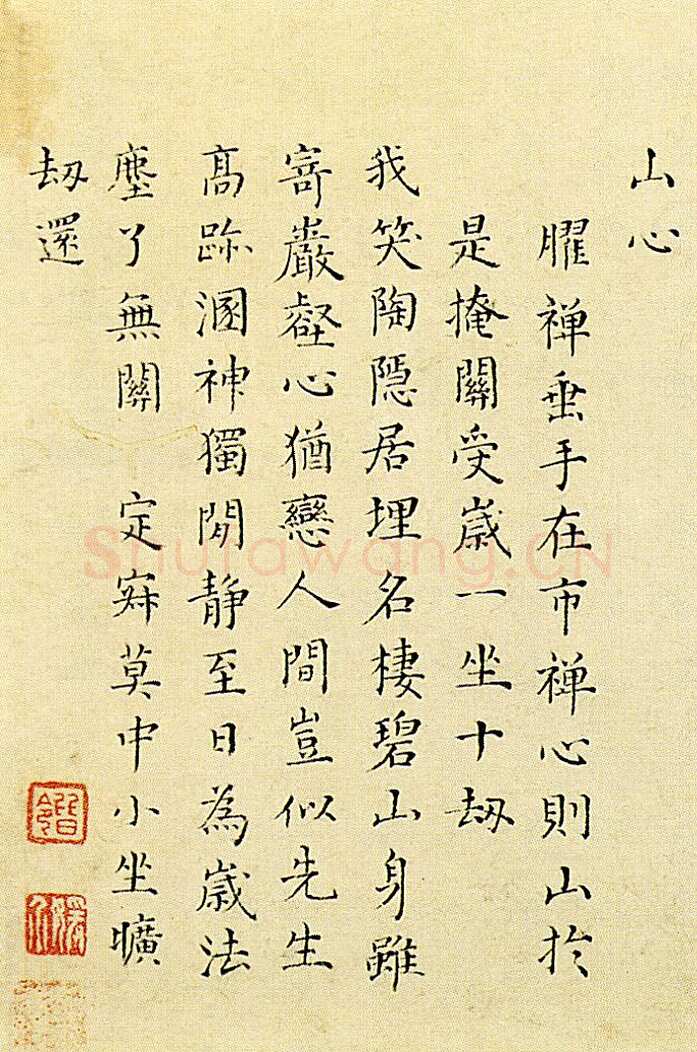 山心
臞禪垂手在市禪心則山於
是掩關受歲一坐十刼
我笑陶隱居埋名棲碧山身雖
寄巖壑心猶戀人間豈似先生
髙跡溷神獨閒靜至日為歲法
塵了無關 定寂莫中小坐曠
刼還
Shufawang.CN